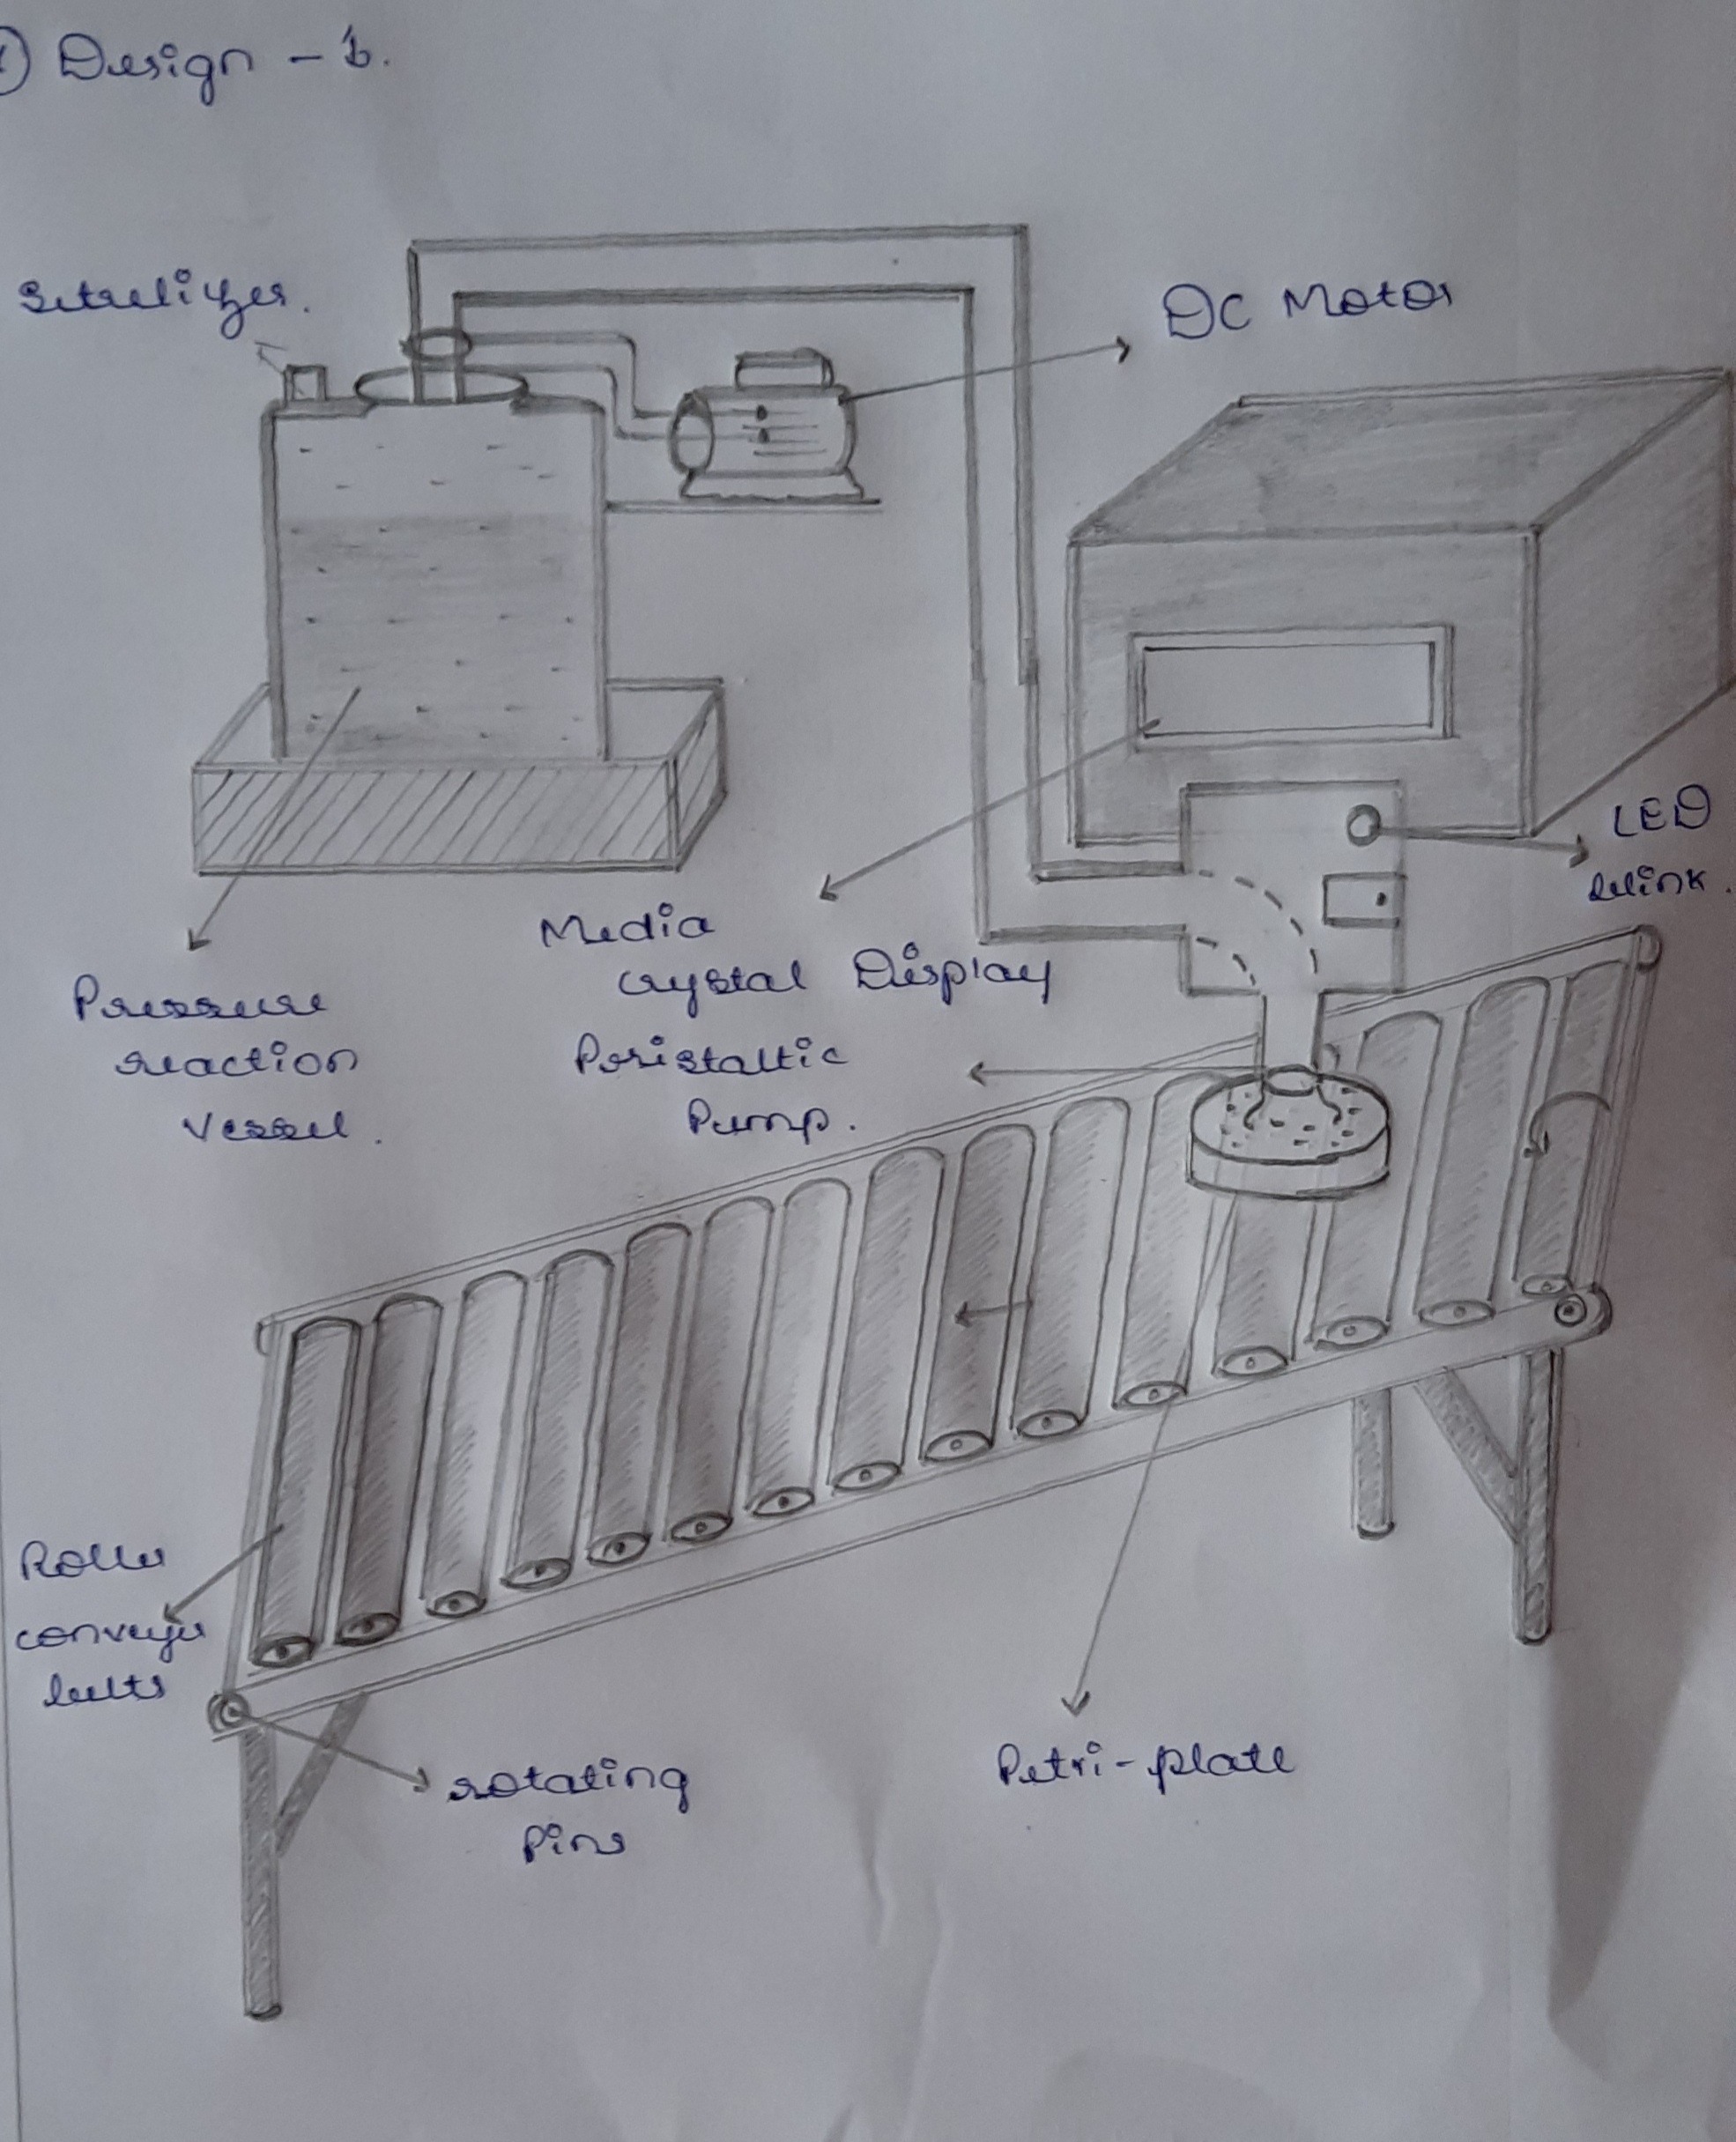 1) Design - 1.
Setrelizer.
DC Motor
LED
blink.
Media
crystal Display
Pressure
reaction
vessel.
Peristaltic
Pump.
Roller
conveyer
belts
rotating
Pins
Petri-plate